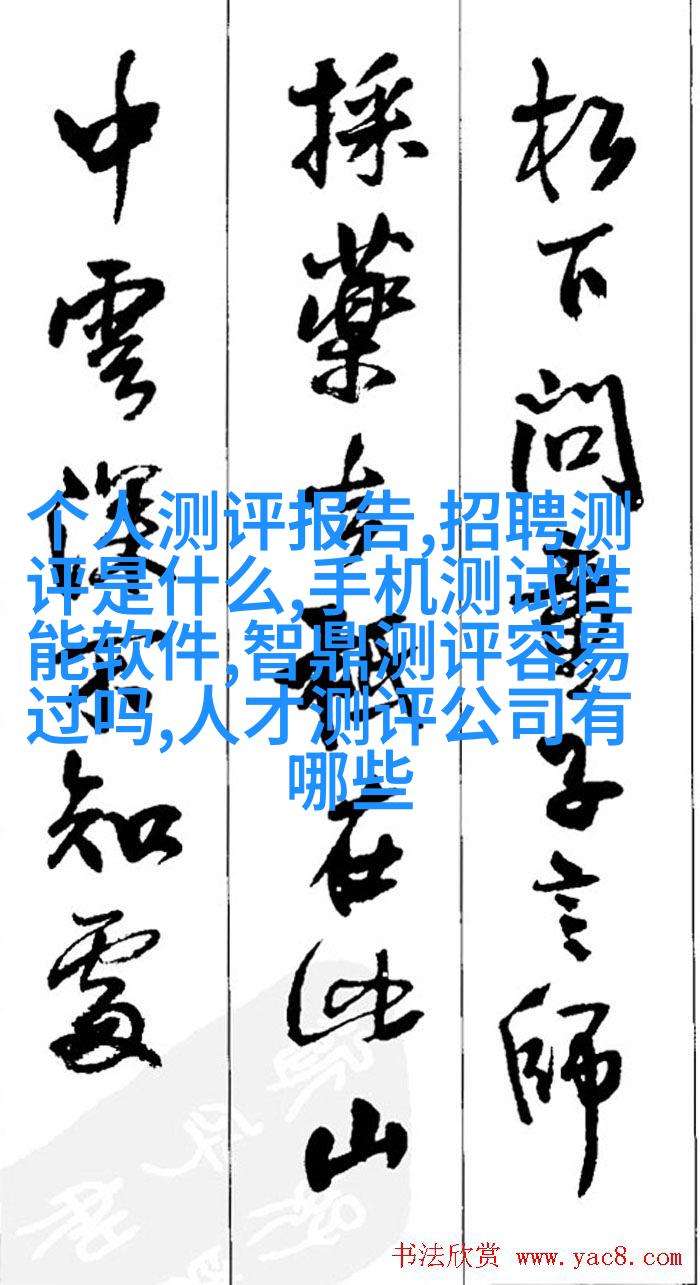 松下问童子言师
採藥去祇在此山
中雲深不知處
个人测评报告,招聘测
评是什么,手机测试性
能软件,智鼎测评容易
过吗,人才测评公司有
哪些
书法欣赏 www.yac8.com